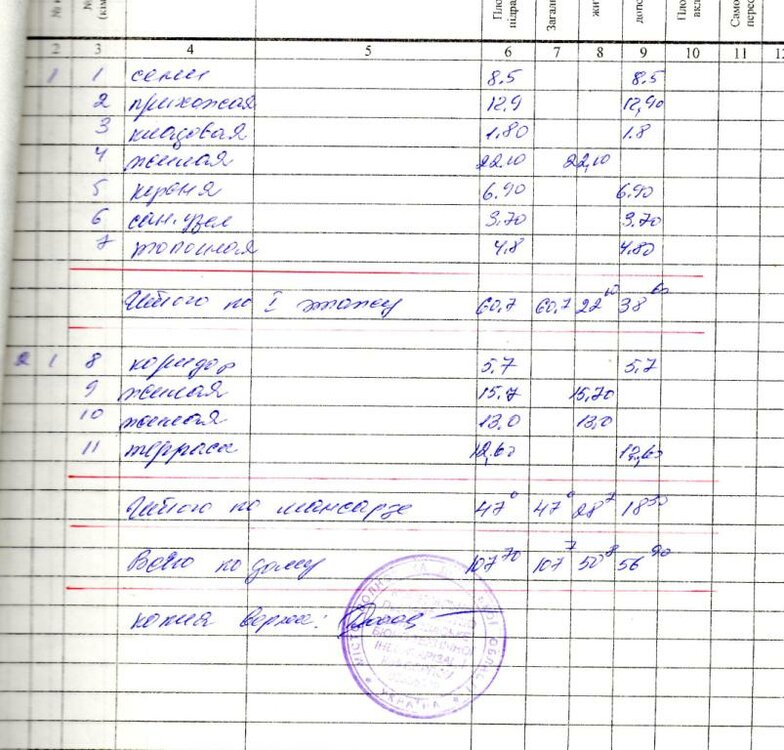 №
№ (кім
Пло підра
Загал
жит
допо
Пло вкл
Само перес
2 3 4 5 6 7 8 9 10 11 12
1 1 сени 8.5 8.5
2 прихожая 12,9 12,90
3 кладовая 1.80 1.8
4 жилая 22.10 22,10
5 кухня 6.90 6.90
6 сан.узел 3.70 3.70
7 топочная 4.8 4.80
Итого по I этажу 60.7 60.7 22 10 38 60
2 1 8 коридор 5.7 5.7
9 жилая 15.7 15,70
10 жилая 13.0 13,0
11 терраса 12,60 12,60
Итого по мансарде 47 0 47 0 28 7 18 30
Всего по дому 107 70 107 7 50 8 56 90
копия верна:
УКРАЇНА